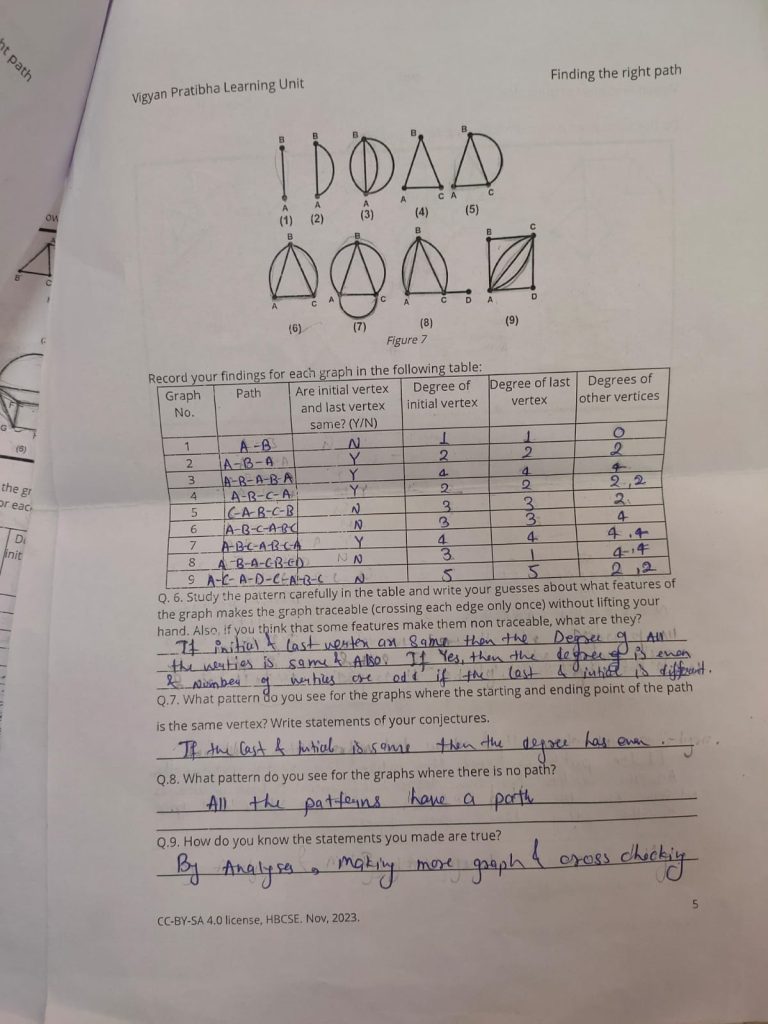 ht path
Vigyan Pratibha Learning Unit
Finding the right path
B B B B B
A A A A C A C
(1) (2) (3) (4) (5)
B B B B C
A C A C A C D A D
(6) (7) (8) (9)
Figure 7
Record your findings for each graph in the following table:
Graph No. Path Are initial vertex and last vertex same? (Y/N) Degree of initial vertex Degree of last vertex Degrees of other vertices
1 A-B N 1 1 0
2 A-B-A Y 2 2 2
3 A-B-A-B-A Y 4 4 4
4 A-B-C-A Y 2 2 2,2
5 C-A-B-C-B N 3 3 2
6 A-B-C-A-BC N 3 3 4
7 A-B-C-A-B-C-A Y 4 4 4,4
8 A-B-A-CB-CD N 3 1 4,4
9 A-C-A-D-C-A-B-C N 5 5 2,2
Q. 6. Study the pattern carefully in the table and write your guesses about what features of
the graph makes the graph traceable (crossing each edge only once) without lifting your
hand. Also, if you think that some features make them non traceable, what are they?
If initial & last vertex are same then the Degree of All
the verties is same & Also If Yes, then the degree of is even
& Number of verties are odd if the last & intial is different.
Q.7. What pattern do you see for the graphs where the starting and ending point of the path
is the same vertex? Write statements of your conjectures.
If the last & Intial is same then the degree has even.
Q.8. What pattern do you see for the graphs where there is no path?
All the patterns have a path
Q.9. How do you know the statements you made are true?
By Analyses, making more graph & cross checkiy
5
CC-BY-SA 4.0 license, HBCSE. Nov, 2023.